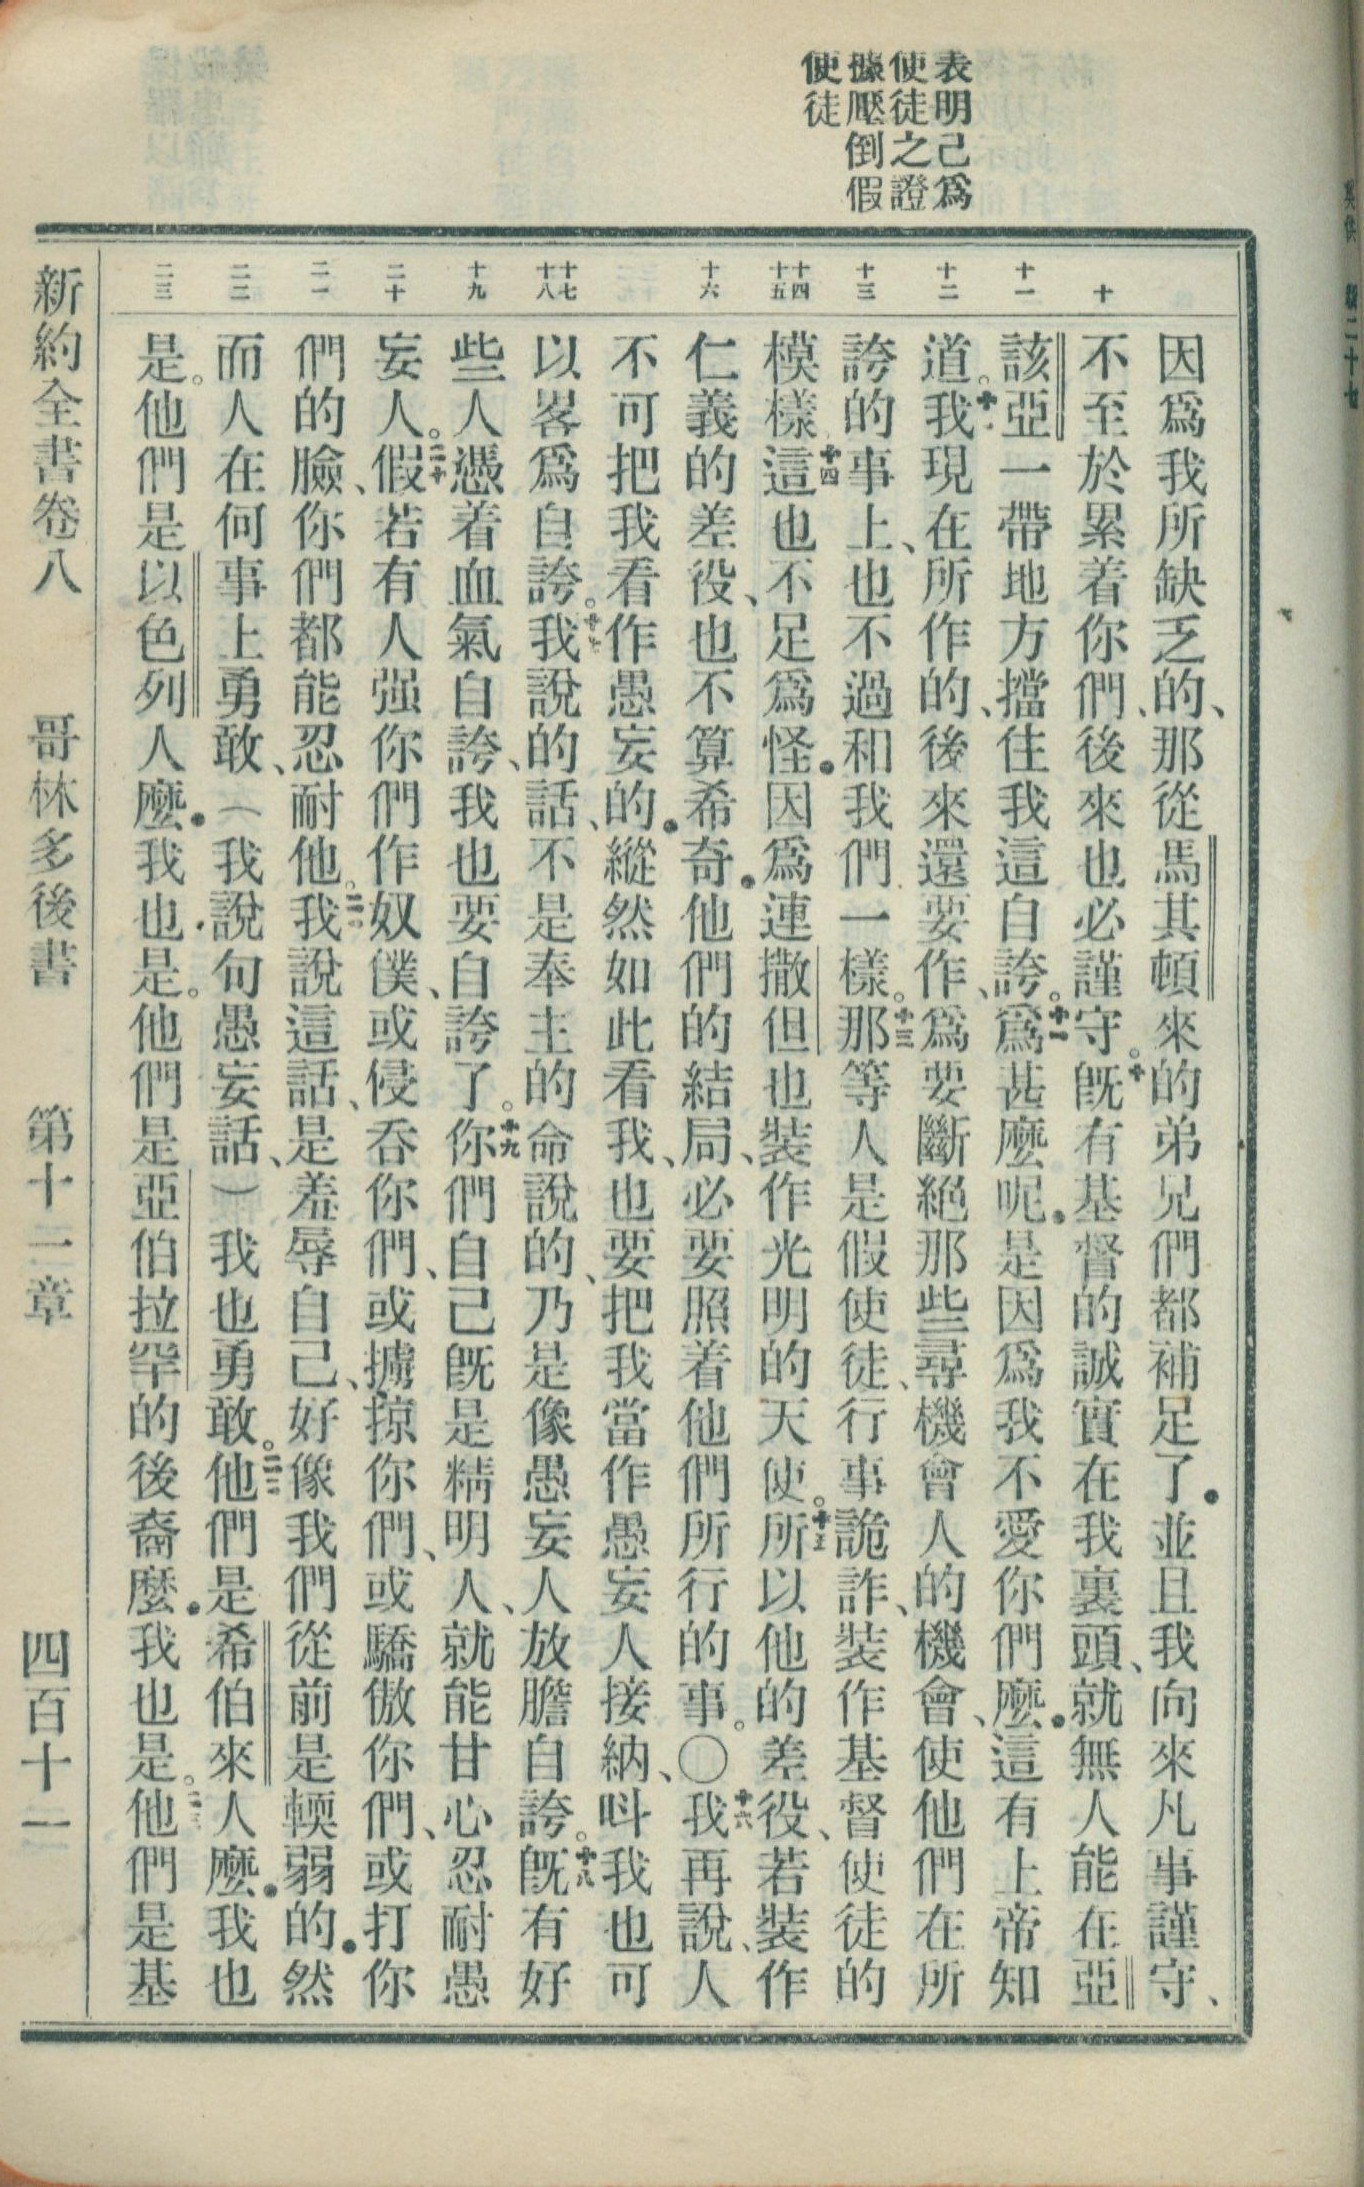 表明己爲
使徒之證
據壓倒假
使徒
十
十一
十二
十三
十四
十五
十六
十七
十八
十九
二十
二一
二二
二三
因爲我所缺乏的、那從馬其頓來的弟兄們都補足了．並且我向來凡事謹守、
不至於累着你們、後來也必謹守。十旣有基督的誠實在我裏頭、就無人能在亞
該亞一帶地方擋住我這自誇。十一爲甚麼呢．是因爲我不愛你們麼．這有上帝知
道。十二我現在所作的、後來還要作、爲要斷絕那些尋機會人的機會、使他們在所
誇的事上、也不過和我們一樣。十三那等人是假使徒、行事詭詐、裝作基督使徒的
模樣十四這也不足爲怪．因爲連撒但也裝作光明的天使。十五所以他的差役、若裝作
仁義的差役、也不算希奇．他們的結局、必要照着他們所行的事。〇十六我再說、人
不可把我看作愚妄的．縱然如此看我、也要把我當作愚妄人接納、呌我也可
以畧爲自誇。十七我說的話、不是奉主的命說的、乃是像愚妄人放膽自誇。十八旣有好
些人憑着血氣自誇、我也要自誇了。十九你們自己旣是精明人、就能甘心忍耐愚
妄人。二十假若有人强你們作奴僕、或侵吞你們、或擄掠你們、或驕傲你們、或打你
們的臉、你們都能忍耐他。二一我說這話、是羞辱自己、好像我們從前是輭弱的．然
而人在何事上勇敢、（我說句愚妄話、）我也勇敢。二二他們是希伯來人麼．我也
是。他們是以色列人麼．我也是。他們是亞伯拉罕的後裔麼．我也是。二三他們是基
新約全書卷八　哥林多後書　第十二章　四百十一